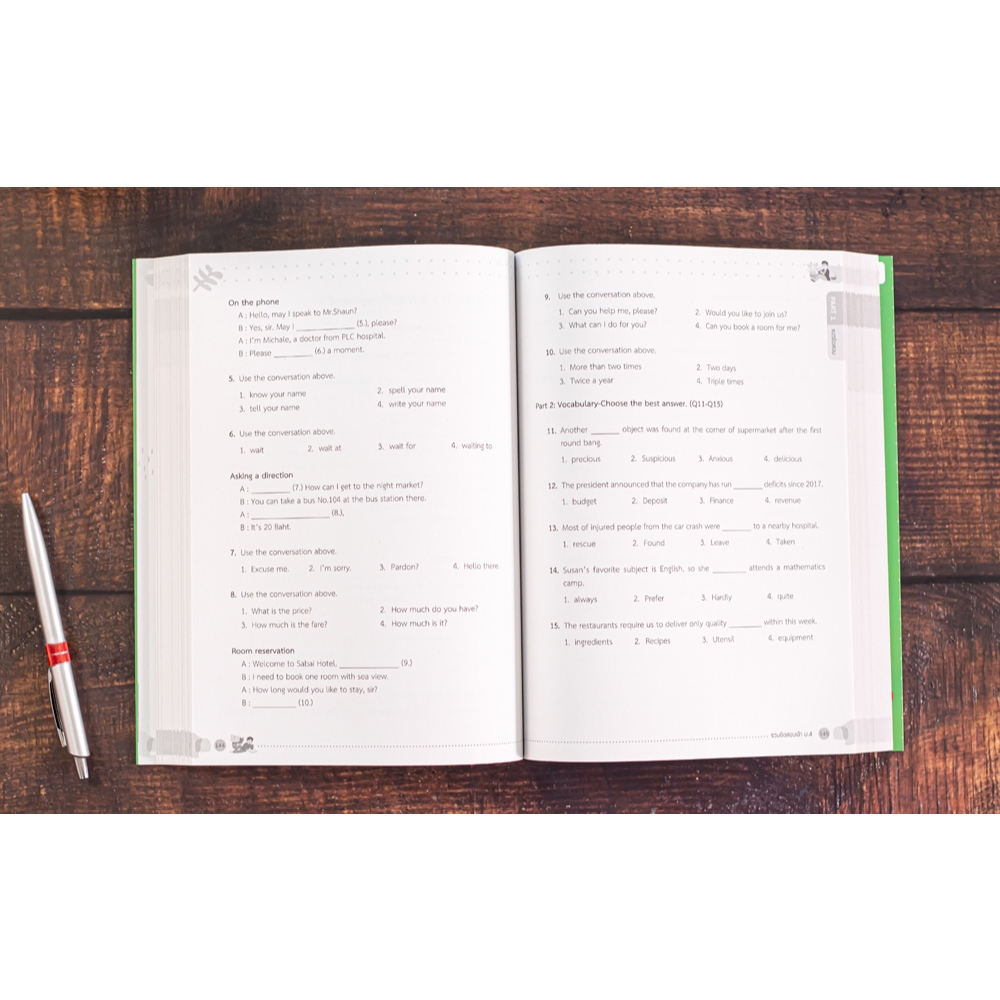 On the phone
A : Hello, may I speak to Mr.Shaun?
B : Yes, sir. May I ____________ (5.), please?
A : I'm Michale, a doctor from PLC hospital.
B : Please ________ (6.) a moment.
5. Use the conversation above.
1. know your name 2. spell your name
3. tell your name 4. write your name
6. Use the conversation above.
1. wait 2. wait at 3. wait for 4. waiting to
Asking a direction
A : ________ (7.) How can I get to the night market?
B : You can take a bus No.104 at the bus station there.
A : ________________ (8.),
B : It's 20 Baht.
7. Use the conversation above.
1. Excuse me. 2. I'm sorry. 3. Pardon? 4. Hello there
8. Use the conversation above.
1. What is the price? 2. How much do you have?
3. How much is the fare? 4. How much is it?
Room reservation
A : Welcome to Sabai Hotel, ____________ (9.)
B : I need to book one room with sea view.
A : How long would you like to stay, sir?
B : _________ (10.)
144
9. Use the conversation above.
1. Can you help me, please? 2. Would you like to join us?
3. What can I do for you? 4. Can you book a room for me?
10. Use the conversation above.
1. More than two times 2. Two days
3. Twice a year 4. Triple times
Part 2: Vocabulary-Choose the best answer. (Q11-Q15)
11. Another ______ object was found at the corner of supermarket after the first
round bang.
1. precious 2. Suspicious 3. Anxious 4. delicious
12. The president announced that the company has run ______ deficits since 2017.
1. budget 2. Deposit 3. Finance 4. revenue
13. Most of injured people from the car crash were ______ to a nearby hospital.
1. rescue 2. Found 3. Leave 4. Taken
14. Susan's favorite subject is English, so she ______ attends a mathematics
camp.
1. always 2. Prefer 3. Hardly 4. quite
15. The restaurants require us to deliver only quality ______ within this week.
1. ingredients 2. Recipes 3. Utensil 4. equipment
PART 3
รวมข้อสอบเข้า ม.4 145